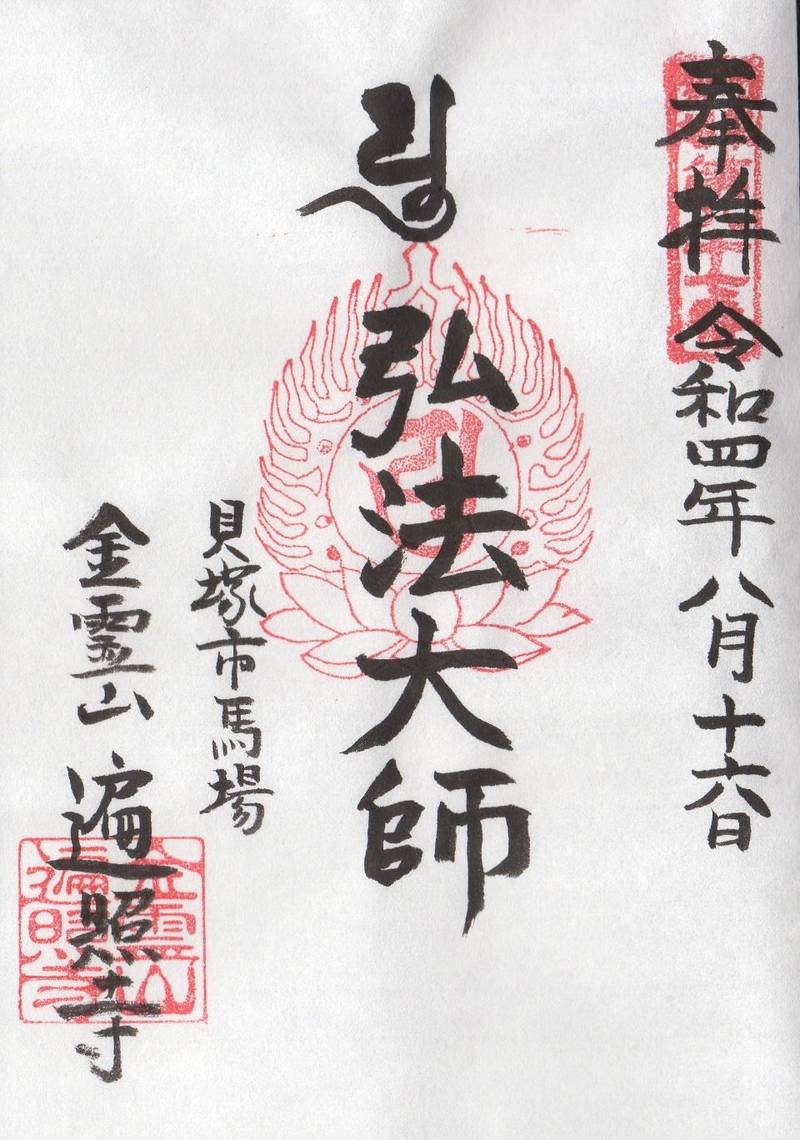 奉拝 令和四年八月十六日
弘法大師
貝塚市馬場
金霊山 遍照寺
金霊山遍照寺